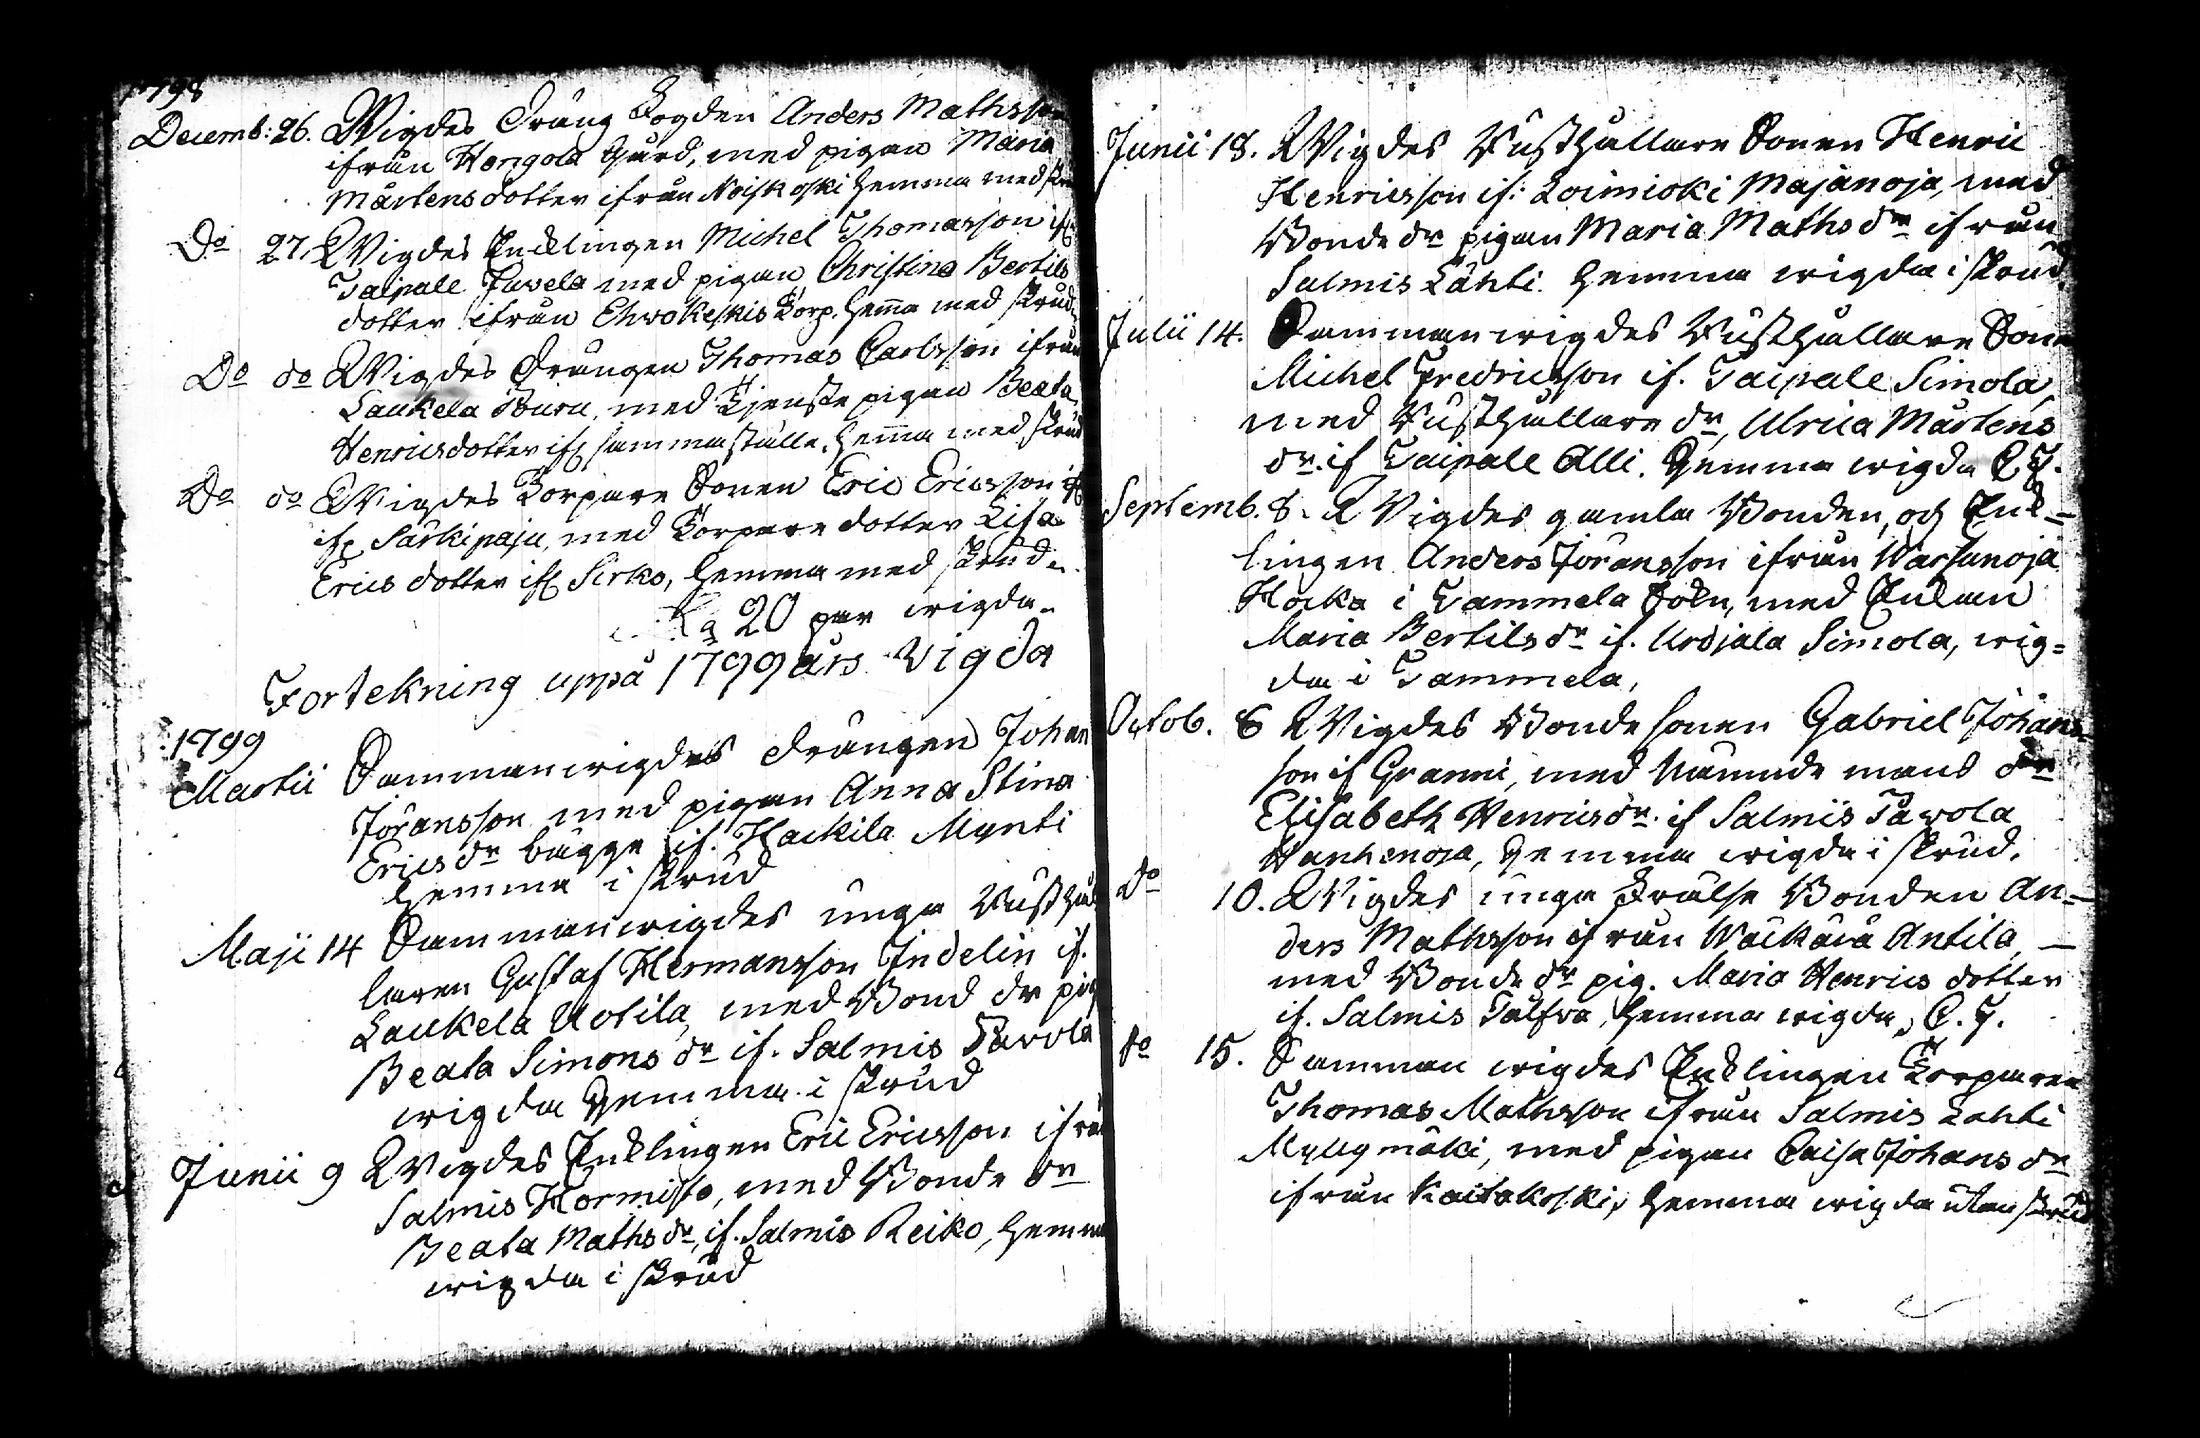 1798
Decemb: 26. Wigdes Dräng Fogden Anders Mathsson
ifrån Hongola Gård, med pigan Maria
Mårtensdotter ifrån Noiskoski hemma med skrud
Do 27. Wigdes Encklingen Michel Thomasson if:
Taipale Juvela med pigan Christina Bertils
dotter ifrån Torp. hem̄a med skrud,
Do do Wigdes Drängen Thomas Carlsson ifrån
Laukela Buru, med Tjenste pigan Beata
Henricsdotter if: samma ställe, hem̄a med skrud
Do do Wigdes Torpare Sonen Eric Ericsson if:
if: Särkipaju, med Torpare dotter Lisa
Erics dotter if: Sirko, hemma med skrud.
20 par wigda.
Fortekning uppå 1799 års Vigda
1799
Martii Sammanwigdes drängen Johan
Jöransson med pigan Anna Stina
Erics dr bägge if. Hackila Mynti
hemma i skrud
Maji 14 Sammanwigdes unga Rusthål
laren Gustaf Hermansson Indelin if.
Laukela Uotila, med Bond dr pig
Beata Simons dr if. Salmis Tavola
wigda hemma i skrud
Junii 9 Wigdes Encklingen Eric Ericsson ifrån
Salmis Hormisto, med Bonde dr
Beata Maths dr, if. Salmis Reiko, hemma
wigda i skrud
Junii 18. Wigdes Rusthållare Sonen Henric
Henricsson if: Loimioki Majanoja, med
Bonde dr pigan Maria Maths dr ifrån
Salmis Lähti. hemma wigda i skrud.
Julii 14. Sammanwigdes Rusthållare Sonen
Michel Fredricsson if. Taipale Simola,
med Rusthållare dr, Ulrica Mårtens
dr. if Taipale Alli. hemma wigda
Septemb. 8. Wigdes gamla Bonden, och Enk=
lingen Anders Jöransson ifrån Warsanoja
Hocka i Tammela Sokn, med Enkan
Maria Bertils dr if. Urdjala Simola, wig=
da i Tammela,
Octob. 6 Wigdes Bonde sonen Gabriel Johans
son if Granni, med Nämnde mans dr
Elisabeth Henrics dr. if Salmis Tavola
hemma wigda i skrud.
Do 10. Wigdes unga Frälse Bonden An=
ders Mathsson ifrån Wäckärä Antila, —
med Bonde dr pig. Maria Henrics dotter
if. Salmis hemma wigda,
do 15. Samman wigdes Encklingen Torparen
Thomas Mathsson ifrån Salmis Lahti
Myllymäki, med pigan Caisa Johans dr
ifrån Kaitakoski, hemma wigda utan skrud